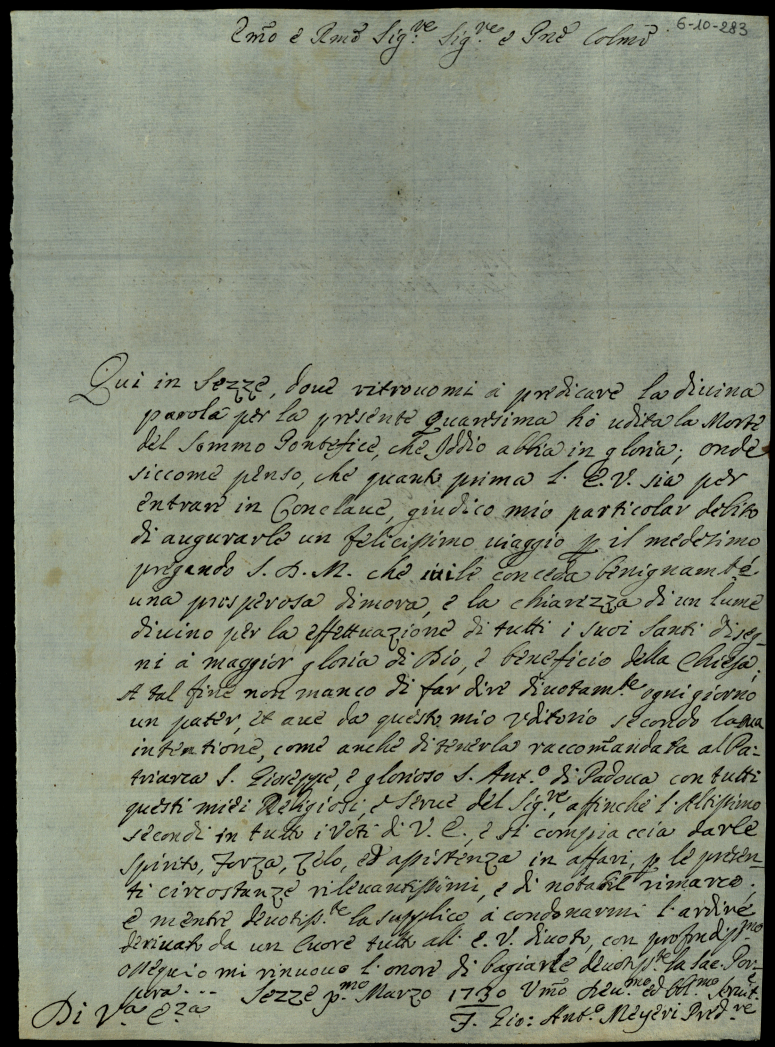 6-10-283
Emõ e Rmõ Sig.re Sig.re e Pnẽ Colmõ
Qui in Sezze, doue ritrouomi à predicare la diuina
parola per la presente Quaresima hò udita la Morte
del Sommo Pontefice, che Iddio abbia in gloria; onde
siccome penso, che quanto prima l' E. V. sia per
entrare in Conclaue, giudico mio particolar debito
di augurarle un felicissimo uiaggio p il medesimo
pregando S. D. M. che iui le conceda benignam.te
una prosperosa dimora, e la chiarezza di un lume
diuino per la effettuazione di tutti i suoi santi diseg-
ni à maggior gloria di Dio, e beneficio della Chiesa;
A tal fine non manco di far dire diuotam.te ogni giorno
un pater, et aue da questo mio Vditorio secondo la sua
intentione, come anche di tenerla raccom̃andata al Pa-
triarca S. Gioseppe, e glorioso S. Ant.o di Padoua con tutti
questi miei Religiosi, e Serue del Sig.re, affinche l' Altissimo
secondi in tutto i Voti di V. E., e si compiaccia darle
spirito, Forza, Zelo, ed assistenza in affari, p le presen-
ti circostanze rileuantissimi, e di notabil rimarco;
e mentre deuotiss.te la supplico à condonarmi l' ardire
deriuato da un Cuore tutto all' E. V. diuoto, con profondiss.mo
ossequio mi rinuouo l' onore di bagiarle deuotiss.te la Sac. Por-
pora --- Sezze p.mo Marzo 1730 Vmõ Deu.mo ed Obl.mo Seruit.e
Di V.a E.za
F. Gio: Ant.o Meyeri Pred.re